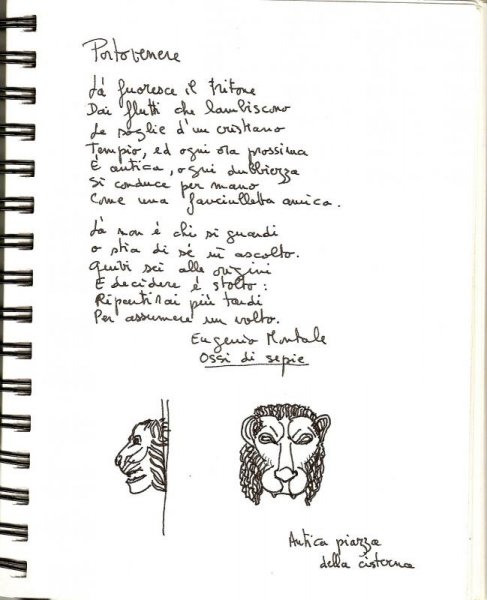 Portovenere
Là fuoresce il tritone
Dai flutti che lambiscono
Le soglie d'un cristiano
Tempio, ed ogni ora prossima
È antica, ogni dubbiezza
Si conduce per mano
Come una fanciulletta amica.
Là non è chi si guardi
o stia di sé in ascolto.
Quivi sei alle origini
E decidere è stolto:
Ripartirai più tardi
Per assumere un volto.
Eugenio Montale
Ossi di sepie
Antica piazza
della cisterna